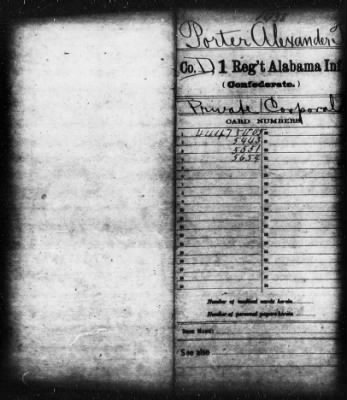 Porter Alexander
Co. D, 1 Reg't Alabama Inf
(Confederate.)
Private Corporal
CARD NUMBERS
5443
5551
5654
Number of medical cards herein
Number of personal papers herein
BOOK MARK:
See also